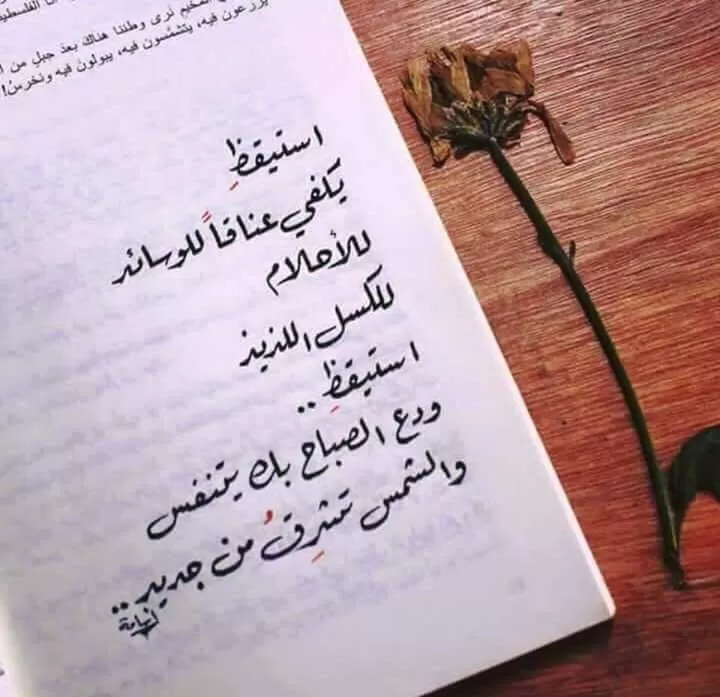 المخيم نرى وطننا هناك بعد جبل من
يزرعون فيه، يتشمسون فيه، يبولون فيه ونخرس!
استيقظِ
يكفي عناقاً للوسائد
للأحلام
للكسل اللذيذ
استيقظِ ..
ودع الصباح بك يتنفس
والشمس تشرِقُ من جديد ..